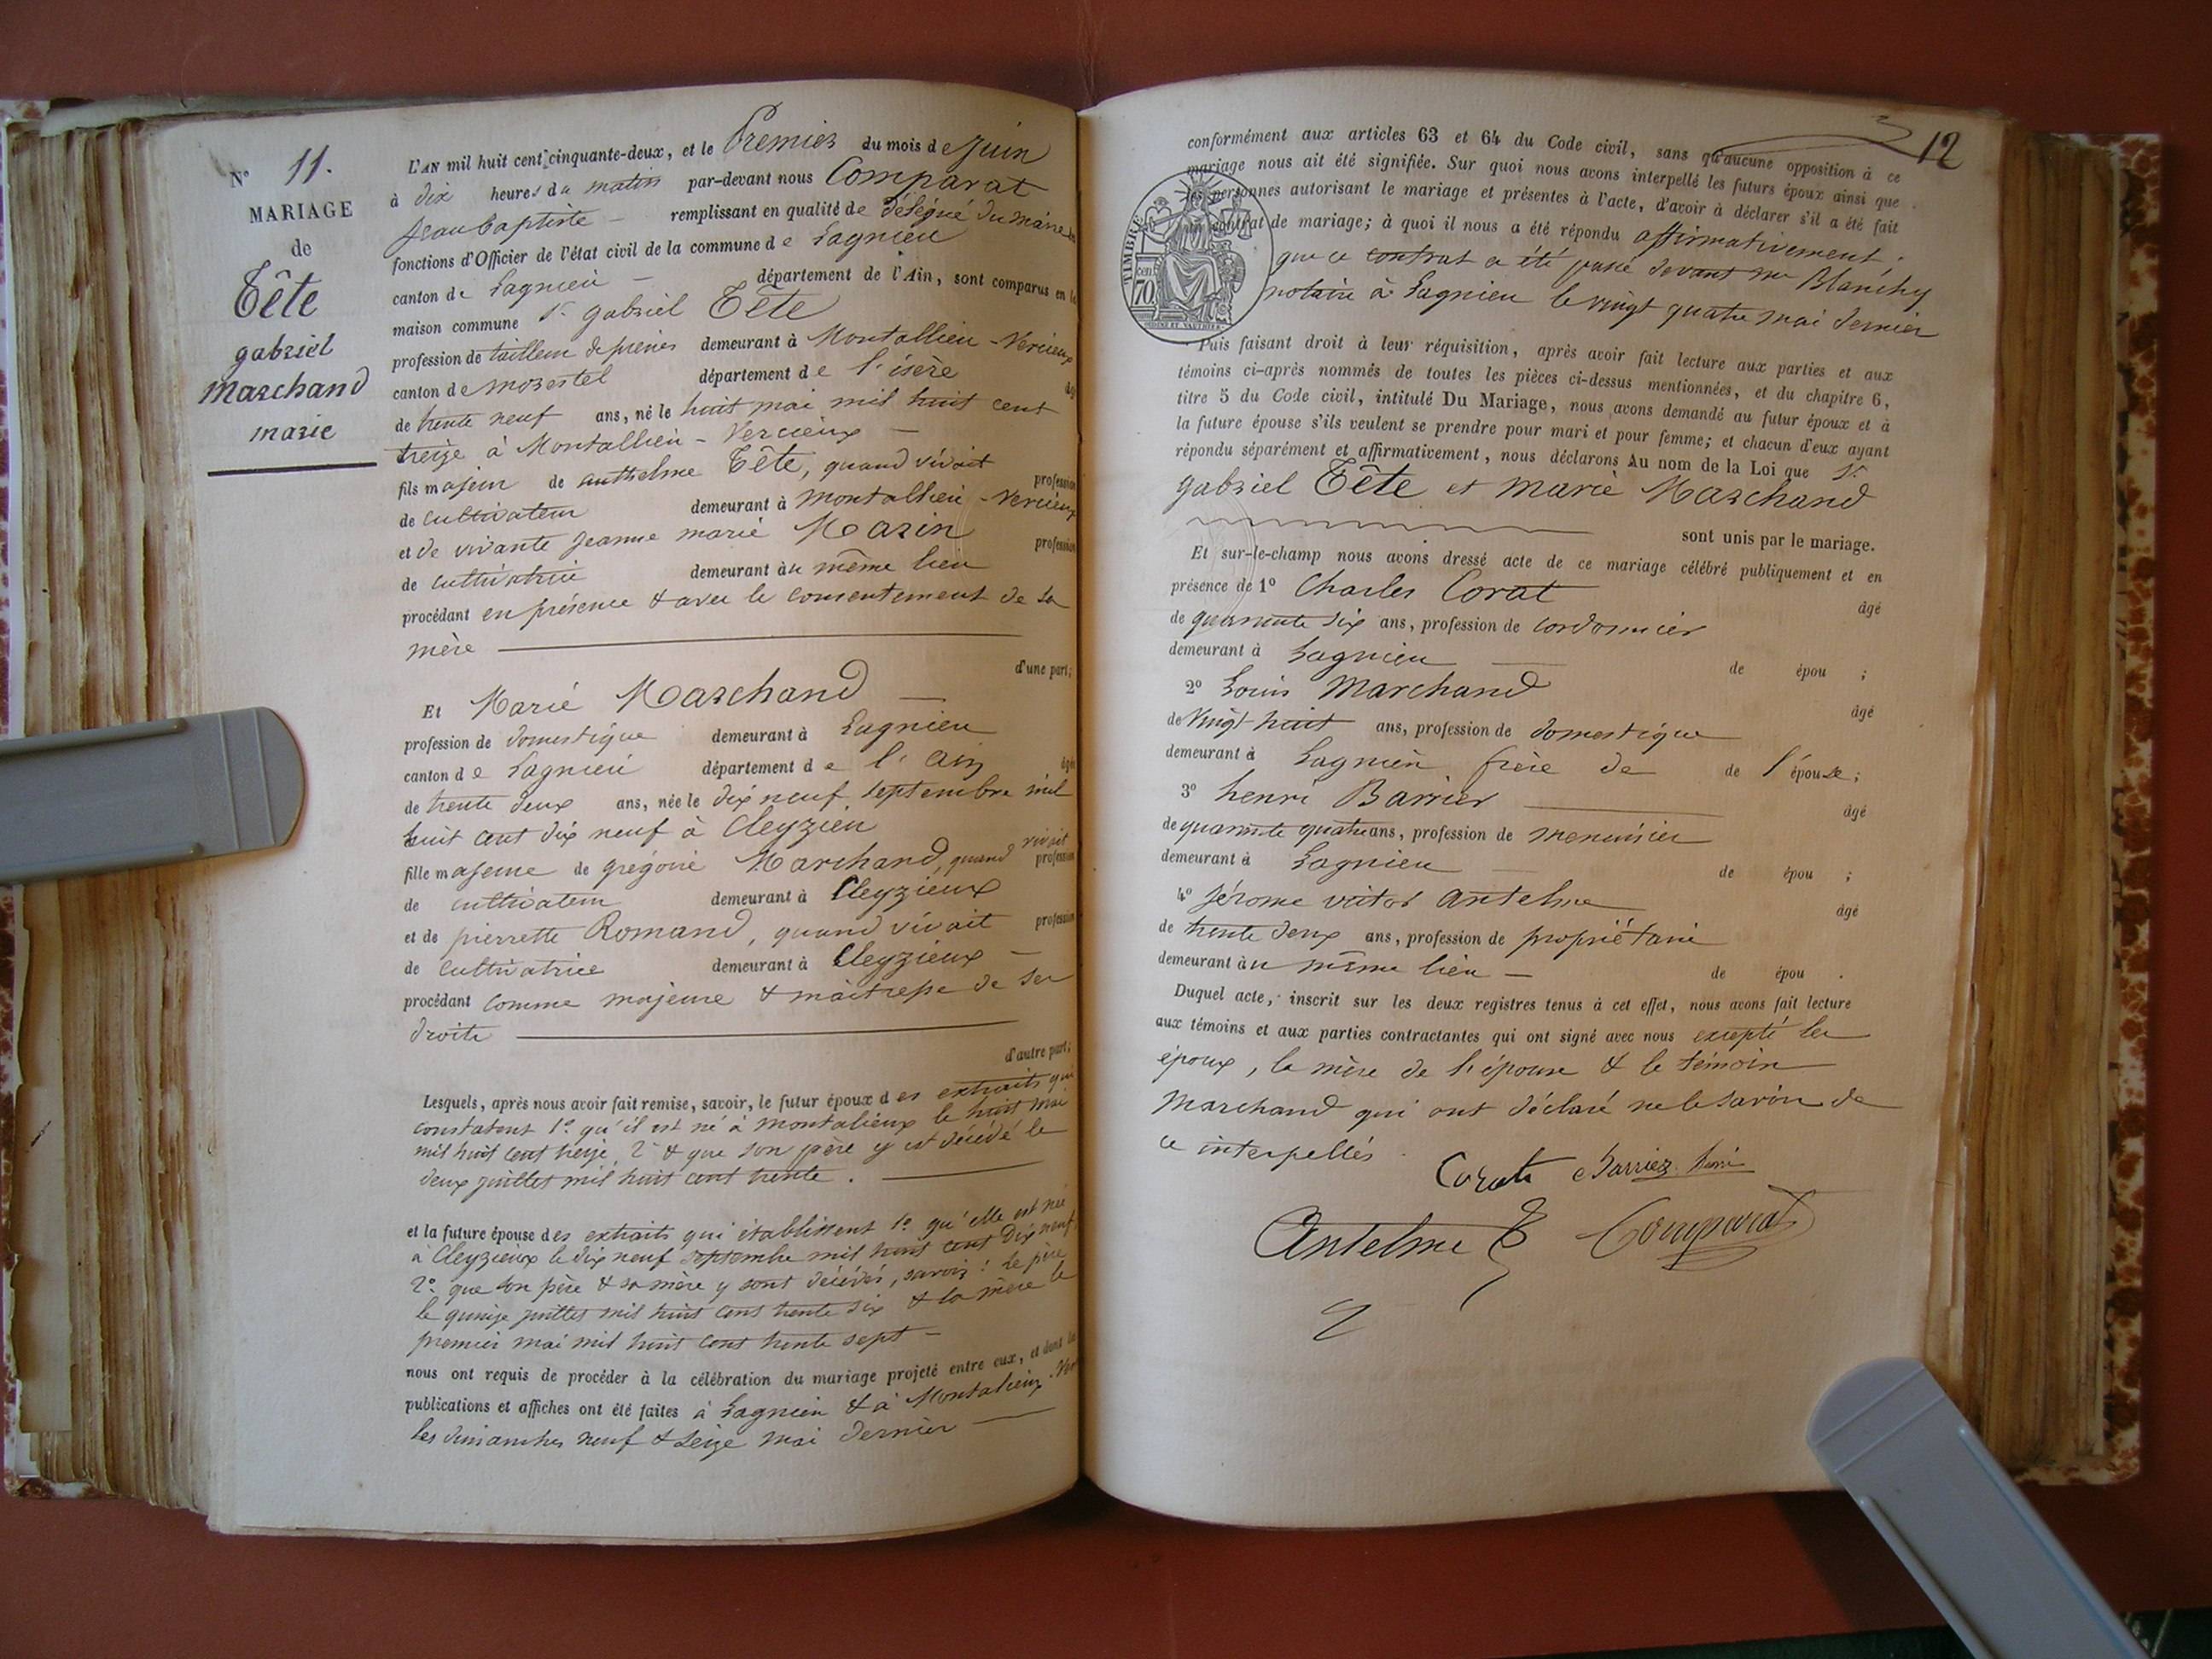 N° 11.
MARIAGE
de
Tête
gabriel
Marchand
marie
L'AN mil huit cent cinquante-deux, et le Premier du mois de juin
à dix heures du matin par-devant nous Comparat
Jean baptiste — remplissant en qualité de délégué du maire les
fonctions d'Officier de l'état civil de la commune de Lagnieu
canton de Lagnieu — département de l'Ain, sont comparus en la
maison commune Sr gabriel Tête
profession de tailleur de pierres demeurant à Montallieu - Vercieux
canton de morestel département de l'isère âgé
de trente neuf ans, né le huit mai mil huit cent
treize à Montallieu - Vercieux —
fils majeur de anthelme Tête, quand vivait profession
de cultivateur demeurant à montallieu - Vercieux
et de vivante jeanne marie Marin profession
de cultivatrice demeurant au même lieu
procédant en présence & avec le consentement de sa
mère
d'une part;
Et Marie Marchand —
profession de domestique demeurant à Lagnieu
canton de Lagnieu département de l'ain âgée
de trente deux ans, née le dix neuf septembre mil
huit cent dix neuf à Cleyzieu
fille majeure de grégoire Marchand, quand vivait profession
de cultivateur demeurant à Cleyzieux
et de pierrette Romand, quand vivait profession
de cultivatrice demeurant à Cleyzieux —
procédant comme majeure & maitresse de ses
droits
d'autre part;
Lesquels, après nous avoir fait remise, savoir, le futur époux des extraits qui
constatent 1° qu'il est né à montalieux le huit mai
mil huit cent treize, 2° & que son père y est décédé le
deux juillet mil huit cent trente.
et la future épouse des extraits qui établissent 1° qu'elle est née
à Cleyzieux le dix neuf septembre mil huit cent dix neuf,
2° que son père & sa mère y sont décédés, savoir : le père
le quinze juillet mil huit cent trente six & la mère le
premier mai mil huit cent trente sept —
nous ont requis de procéder à la célébration du mariage projeté entre eux, et dont les
publications et affiches ont été faites à Lagnieu & à Montalieux - Ver
les dimanches neuf & seize mai dernier
12
conformément aux articles 63 et 64 du Code civil, sans qu'aucune opposition à ce
mariage nous ait été signifiée. Sur quoi nous avons interpellé les futurs époux ainsi que
les personnes autorisant le mariage et présentes à l'acte, d'avoir à déclarer s'il a été fait
un contrat de mariage; à quoi il nous a été répondu affirmativement.
que ce contrat a été passé devant me Blanchy
notaire à Lagnieu le vingt quatre mai dernier
TIMBRE
70
Puis faisant droit à leur réquisition, après avoir fait lecture aux parties et aux
témoins ci-après nommés de toutes les pièces ci-dessus mentionnées, et du chapitre 6,
titre 5 du Code civil, intitulé Du Mariage, nous avons demandé au futur époux et à
la future épouse s'ils veulent se prendre pour mari et pour femme; et chacun d'eux ayant
répondu séparément et affirmativement, nous déclarons Au nom de la Loi que Sr
gabriel Tête et marie Marchand
sont unis par le mariage.
Et sur-le-champ nous avons dressé acte de ce mariage célébré publiquement et en
présence de 1° Charles Corat
âgé
de quarante six ans, profession de cordonnier
demeurant à Lagnieu — de épou ;
2° Louis Marchand
âgé
de vingt huit ans, profession de domestique
demeurant à Lagnieu frère de de l'épouse;
3° henri Barrier
âgé
de quarante quatre ans, profession de menuisier
demeurant à Lagnieu — de épou ;
4° Jérome victor antelme
âgé
de trente deux ans, profession de propriétaire
demeurant au même lieu — de épou .
Duquel acte, inscrit sur les deux registres tenus à cet effet, nous avons fait lecture
aux témoins et aux parties contractantes qui ont signé avec nous excepté les
époux, la mère de l'épouse & le témoin
Marchand qui ont déclaré ne le savoir de
ce interpellés.
Corat Barrier henri
Antelme Comparat